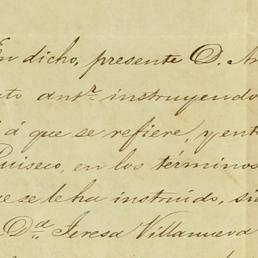 En dicho, presente D. An
to antr. instruyendo
á que se refiere, y ent
Puiseco, en los términos
se le ha instruido, si
Da. Teresa Villanueva